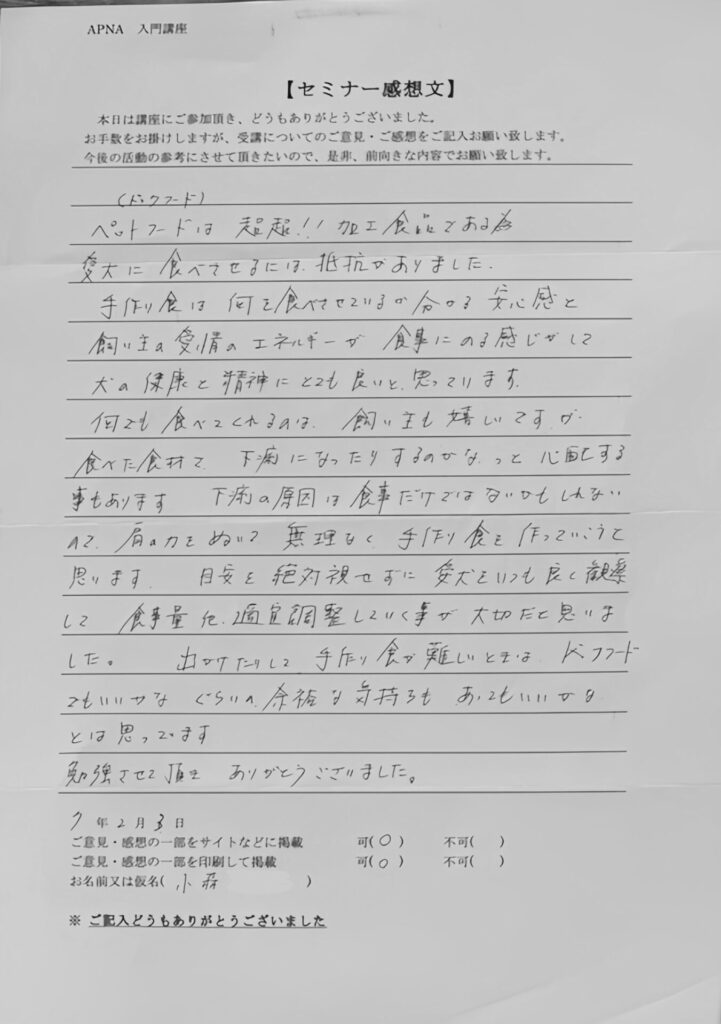 APNA 入門講座
【セミナー感想文】
本日は講座にご参加頂き、どうもありがとうございました。
お手数をお掛けしますが、受講についてのご意見・ご感想をご記入お願い致します。
今後の活動の参考にさせて頂きたいので、是非、前向きな内容でお願い致します。
(ドックフード)
ペットフードは 超超!! 加工食品である為
愛犬に 食べさせるには、抵抗がありました。
手作り食は 何を食べさせているか 分かる 安心感と
飼い主の愛情の エネルギーが 食事にのる感じがして
犬の健康と精神にとても良いと、思っています。
何でも食べてくれるのは、飼い主も嬉しいですが
食べた食材で、下痢になったりするのかな、っと 心配する
事もあります 下痢の原因は食事だけではないかもしれない
ので、肩の力をぬいて 無理なく 手作り食を作っていこうと
思います。 目安を絶対視せずに 愛犬をいつも良く観察
して 食事量を、適宜調整していく事が大切だと思いま
した。 出かけたりして 手作り食が難しいときは、ドックフード
でもいいかな ぐらいの、余裕な気持ちも あってもいいかな
とは思っています
勉強させて頂き ありがとうございました。
7 年 2 月 3 日
ご意見・感想の一部をサイトなどに掲載 可(○) 不可( )
ご意見・感想の一部を印刷して掲載 可(○) 不可( )
お名前又は仮名( 小森 )
※ ご記入どうもありがとうございました